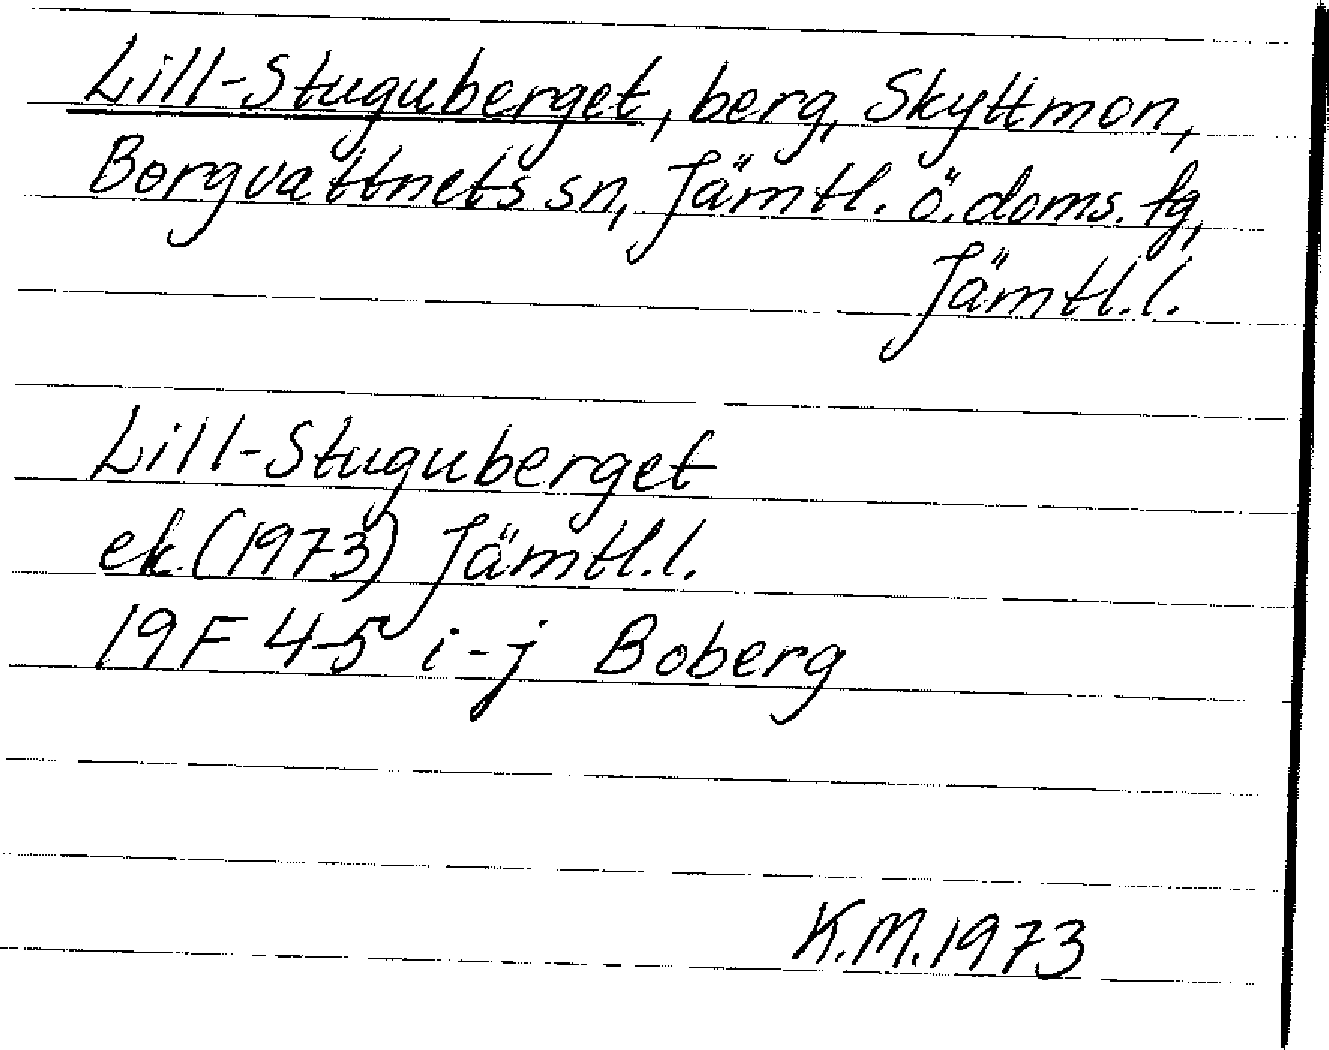 Lill-Stuguberget, berg, Skyttmon,
Borgvattnets sn, Jämtl. ö. doms. fg,
Jämtl. l.
Lill-Stuguberget
ek. (1973) Jämtl. l.
19 F 4-5 i-j Boberg
K.M. 1973